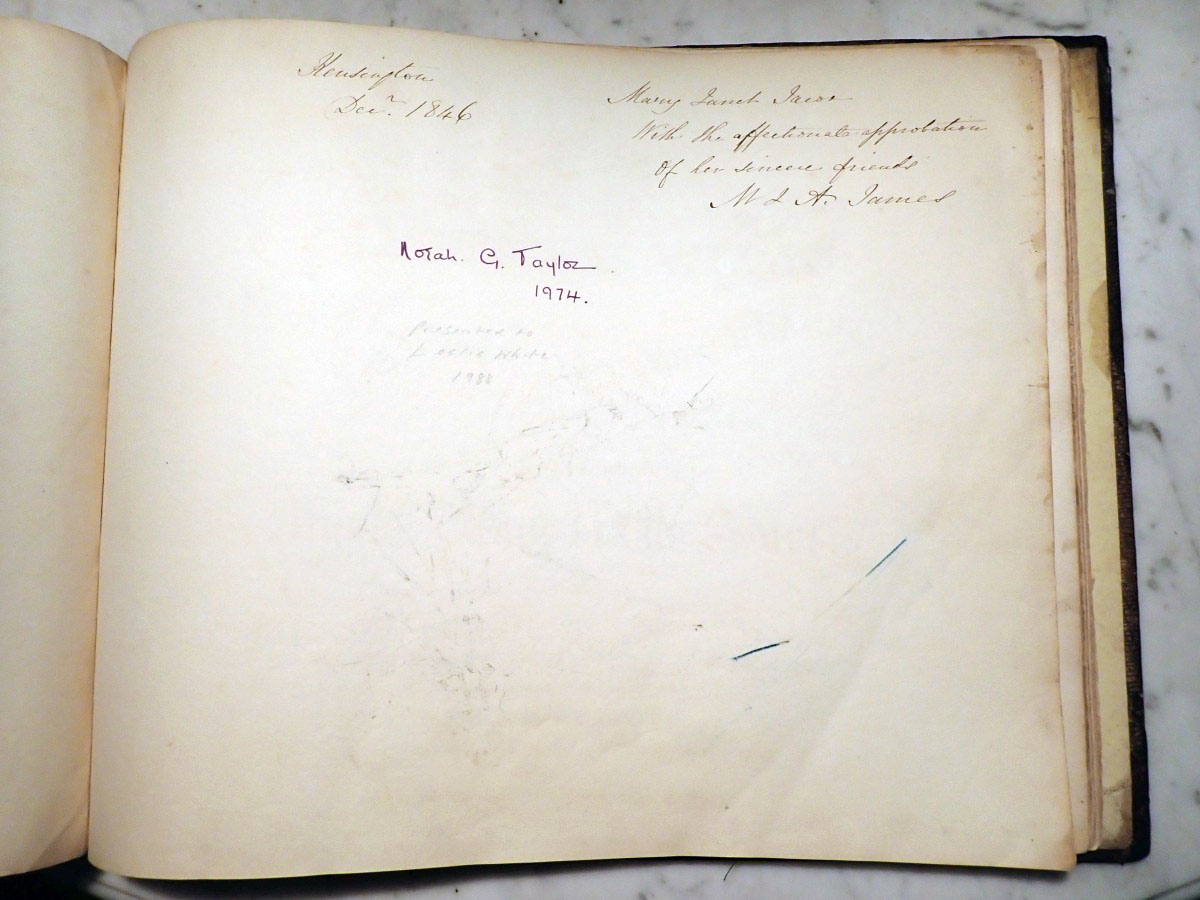 Kensington
Decr. 1846
Mary Janet
With the affectionate approbation
Of her sincere friends
M & A. James
Norah. G. Taylor
1974.
Presented to
Leslie White
1988